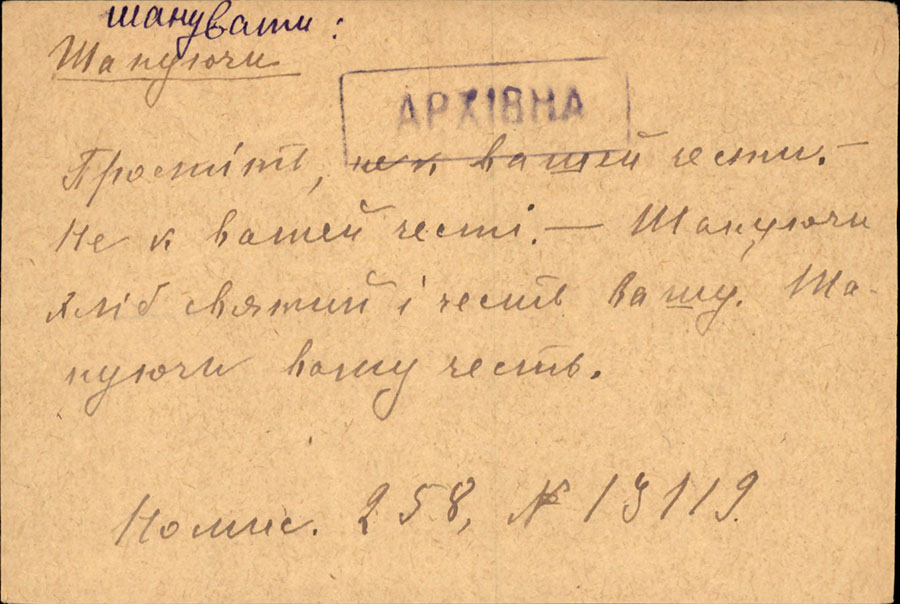 шанувати:
Шануючи
АРХІВНА
Простіть, не к вашей чести.—
Не к вашей честі.— Шануючи
хліб святий і честь вашу. Ша-
нуючи вашу честь.
Номис. 258, № 13119.